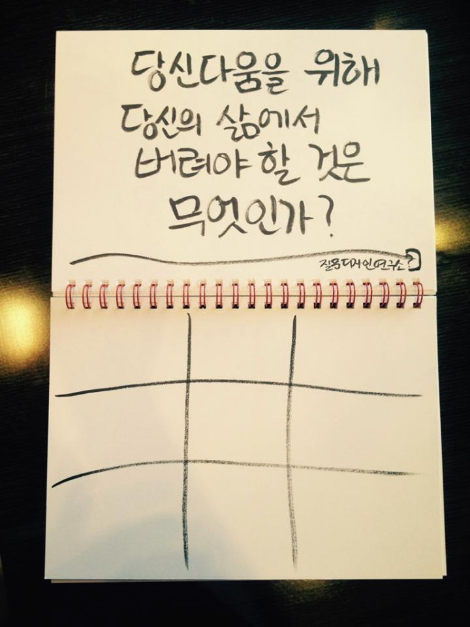 당신다움을 위해
당신의 삶에서
버려야 할 것은
무엇인가?
질문디자인연구소